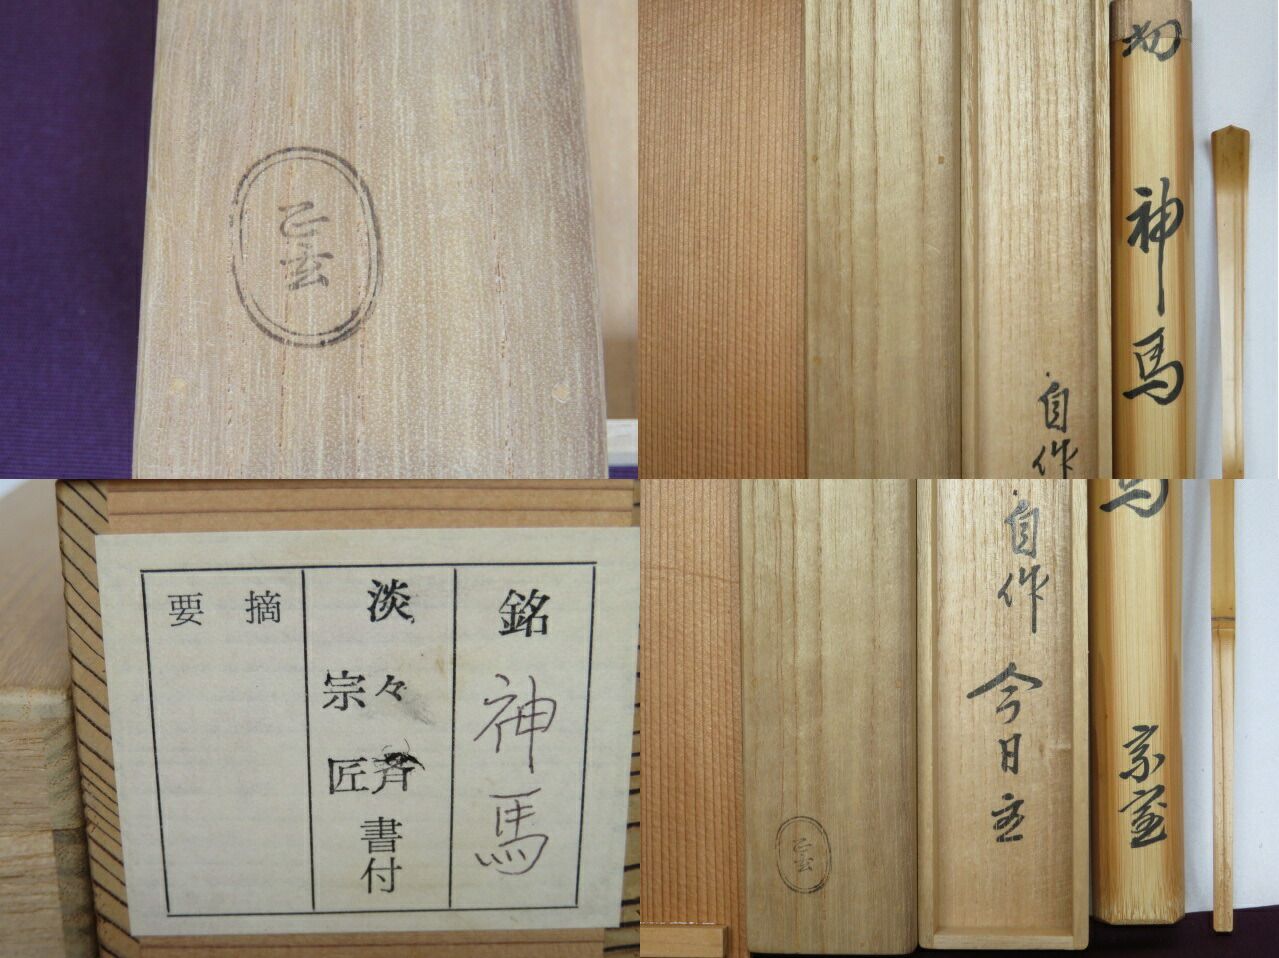 己玄
神馬
自作
銘
神馬
淡々斉
宗匠
書付
摘要
自作
今日主
馬
宗室
己玄